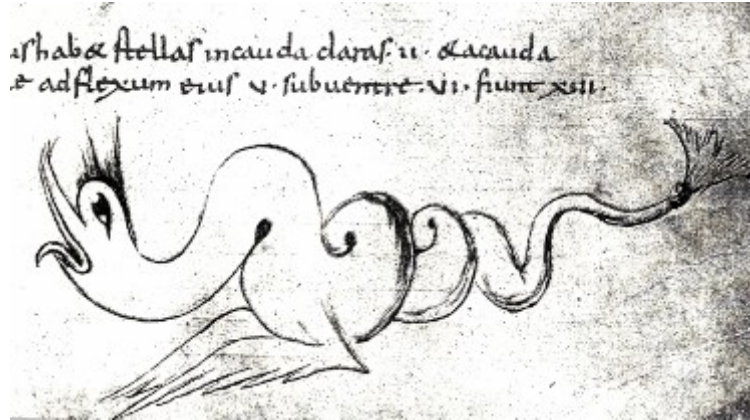 ushab& stellas incauda claras· ii· &acauda
e adflexum eius v· subuentre· vi· fiunt xiii·